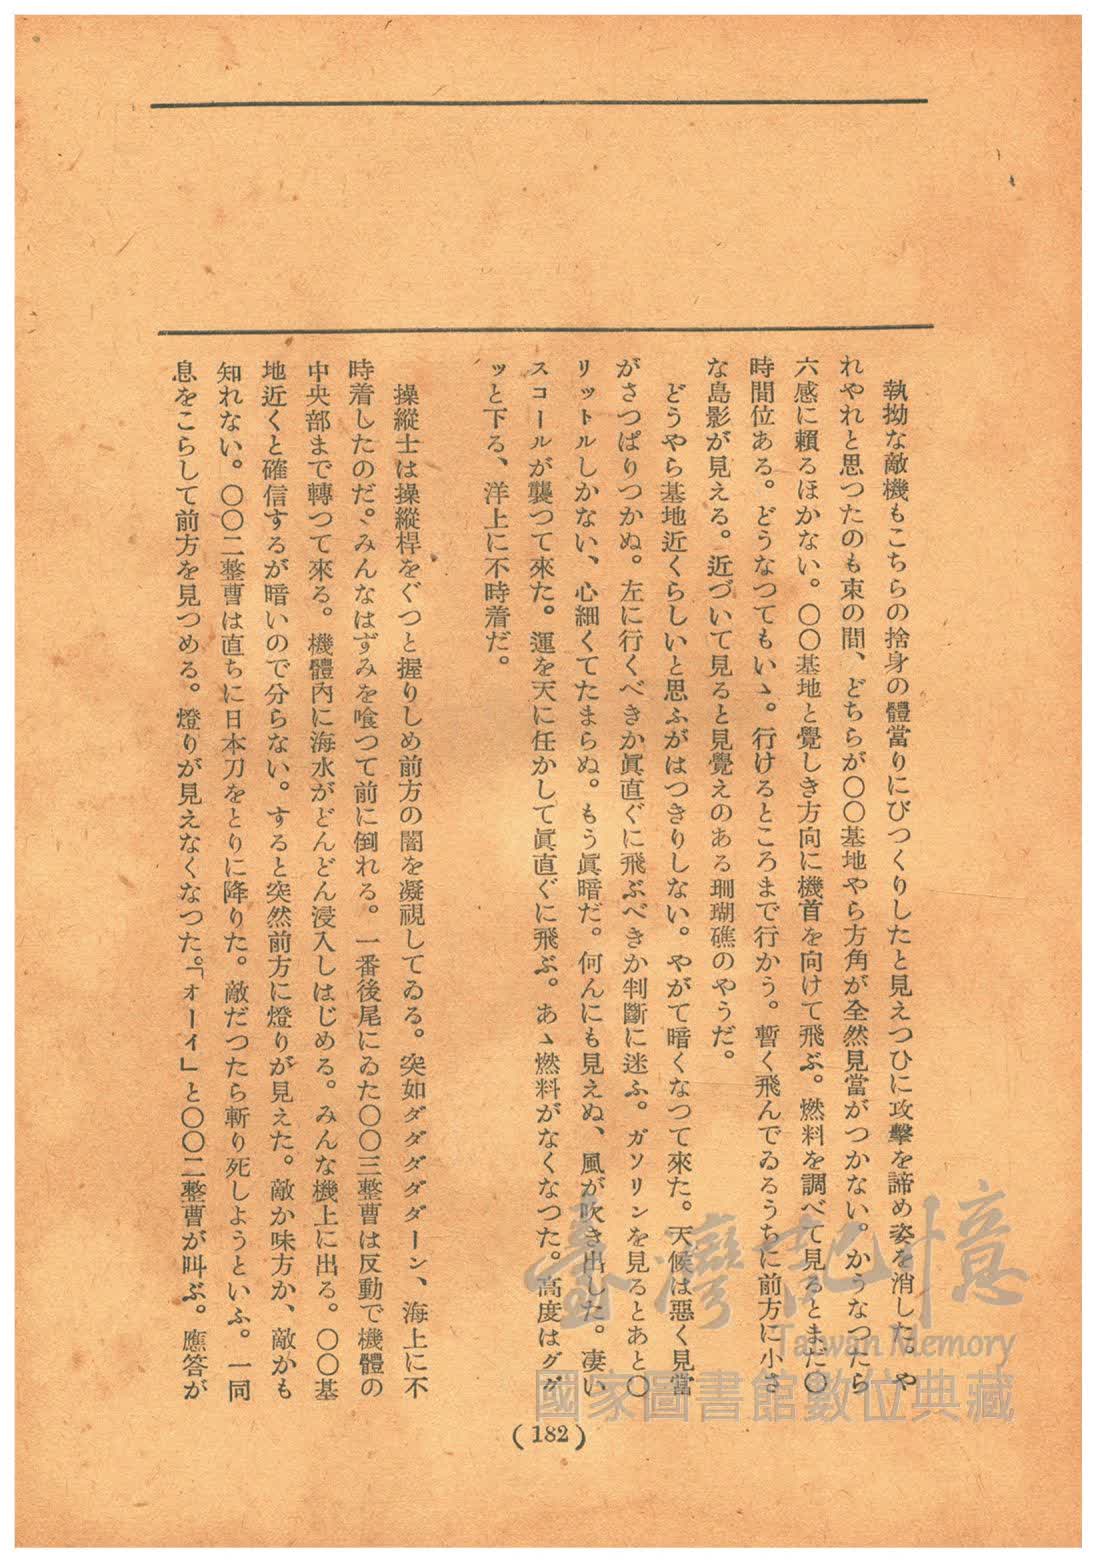 執拗な敵機もこちらの捨身の體當りにびつくりしたと見えつひに攻擊を諦め姿を消した。や
れやれと思つたのも束の間、どちらが〇〇基地やら方角が全然見當がつかない。かうなつたら
六感に賴るほかない。〇〇基地と覺しき方向に機首を向けて飛ぶ。燃料を調べて見るとまだ〇
時間位ある。どうなつてもいゝ。行けるところまで行かう。暫く飛んでゐるうちに前方に小さ
な島影が見える。近づいて見ると見覺えのある珊瑚礁のやうだ。
どうやら基地近くらしいと思ふがはつきりしない。やがて暗くなつて來た。天候は惡く見當
がさつぱりつかぬ。左に行くべきか眞直ぐに飛ぶべきか判斷に迷ふ。ガソリンを見るとあと〇
リットルしかない、心細くてたまらぬ。もう眞暗だ。何んにも見えぬ、風が吹き出した。凄い
スコールが襲つて來た。運を天に任かして眞直ぐに飛ぶ。あゝ燃料がなくなつた。高度はググ
ッと下る、洋上に不時着だ。
操縱士は操縱桿をぐつと握りしめ前方の闇を凝視してゐる。突如ダダダダダーン、海上に不
時着したのだ。みんなはずみを喰つて前に倒れる。一番後尾にゐた〇〇三整曹は反動で機體の
中央部まで轉つて來る。機體內に海水がどんどん浸入しはじめる。みんな機上に出る。〇〇基
地近くと確信するが暗いので分らない。すると突然前方に燈りが見えた。敵か味方か、敵かも
知れない。〇〇二整曹は直ちに日本刀をとりに降りた。敵だつたら斬り死しようといふ。一同
息をこらして前方を見つめる。燈りが見えなくなつた。「オーイ」と〇〇二整曹が叫ぶ。應答が
(182)
臺灣記憶
Taiwan Memory
國家圖書館數位典藏